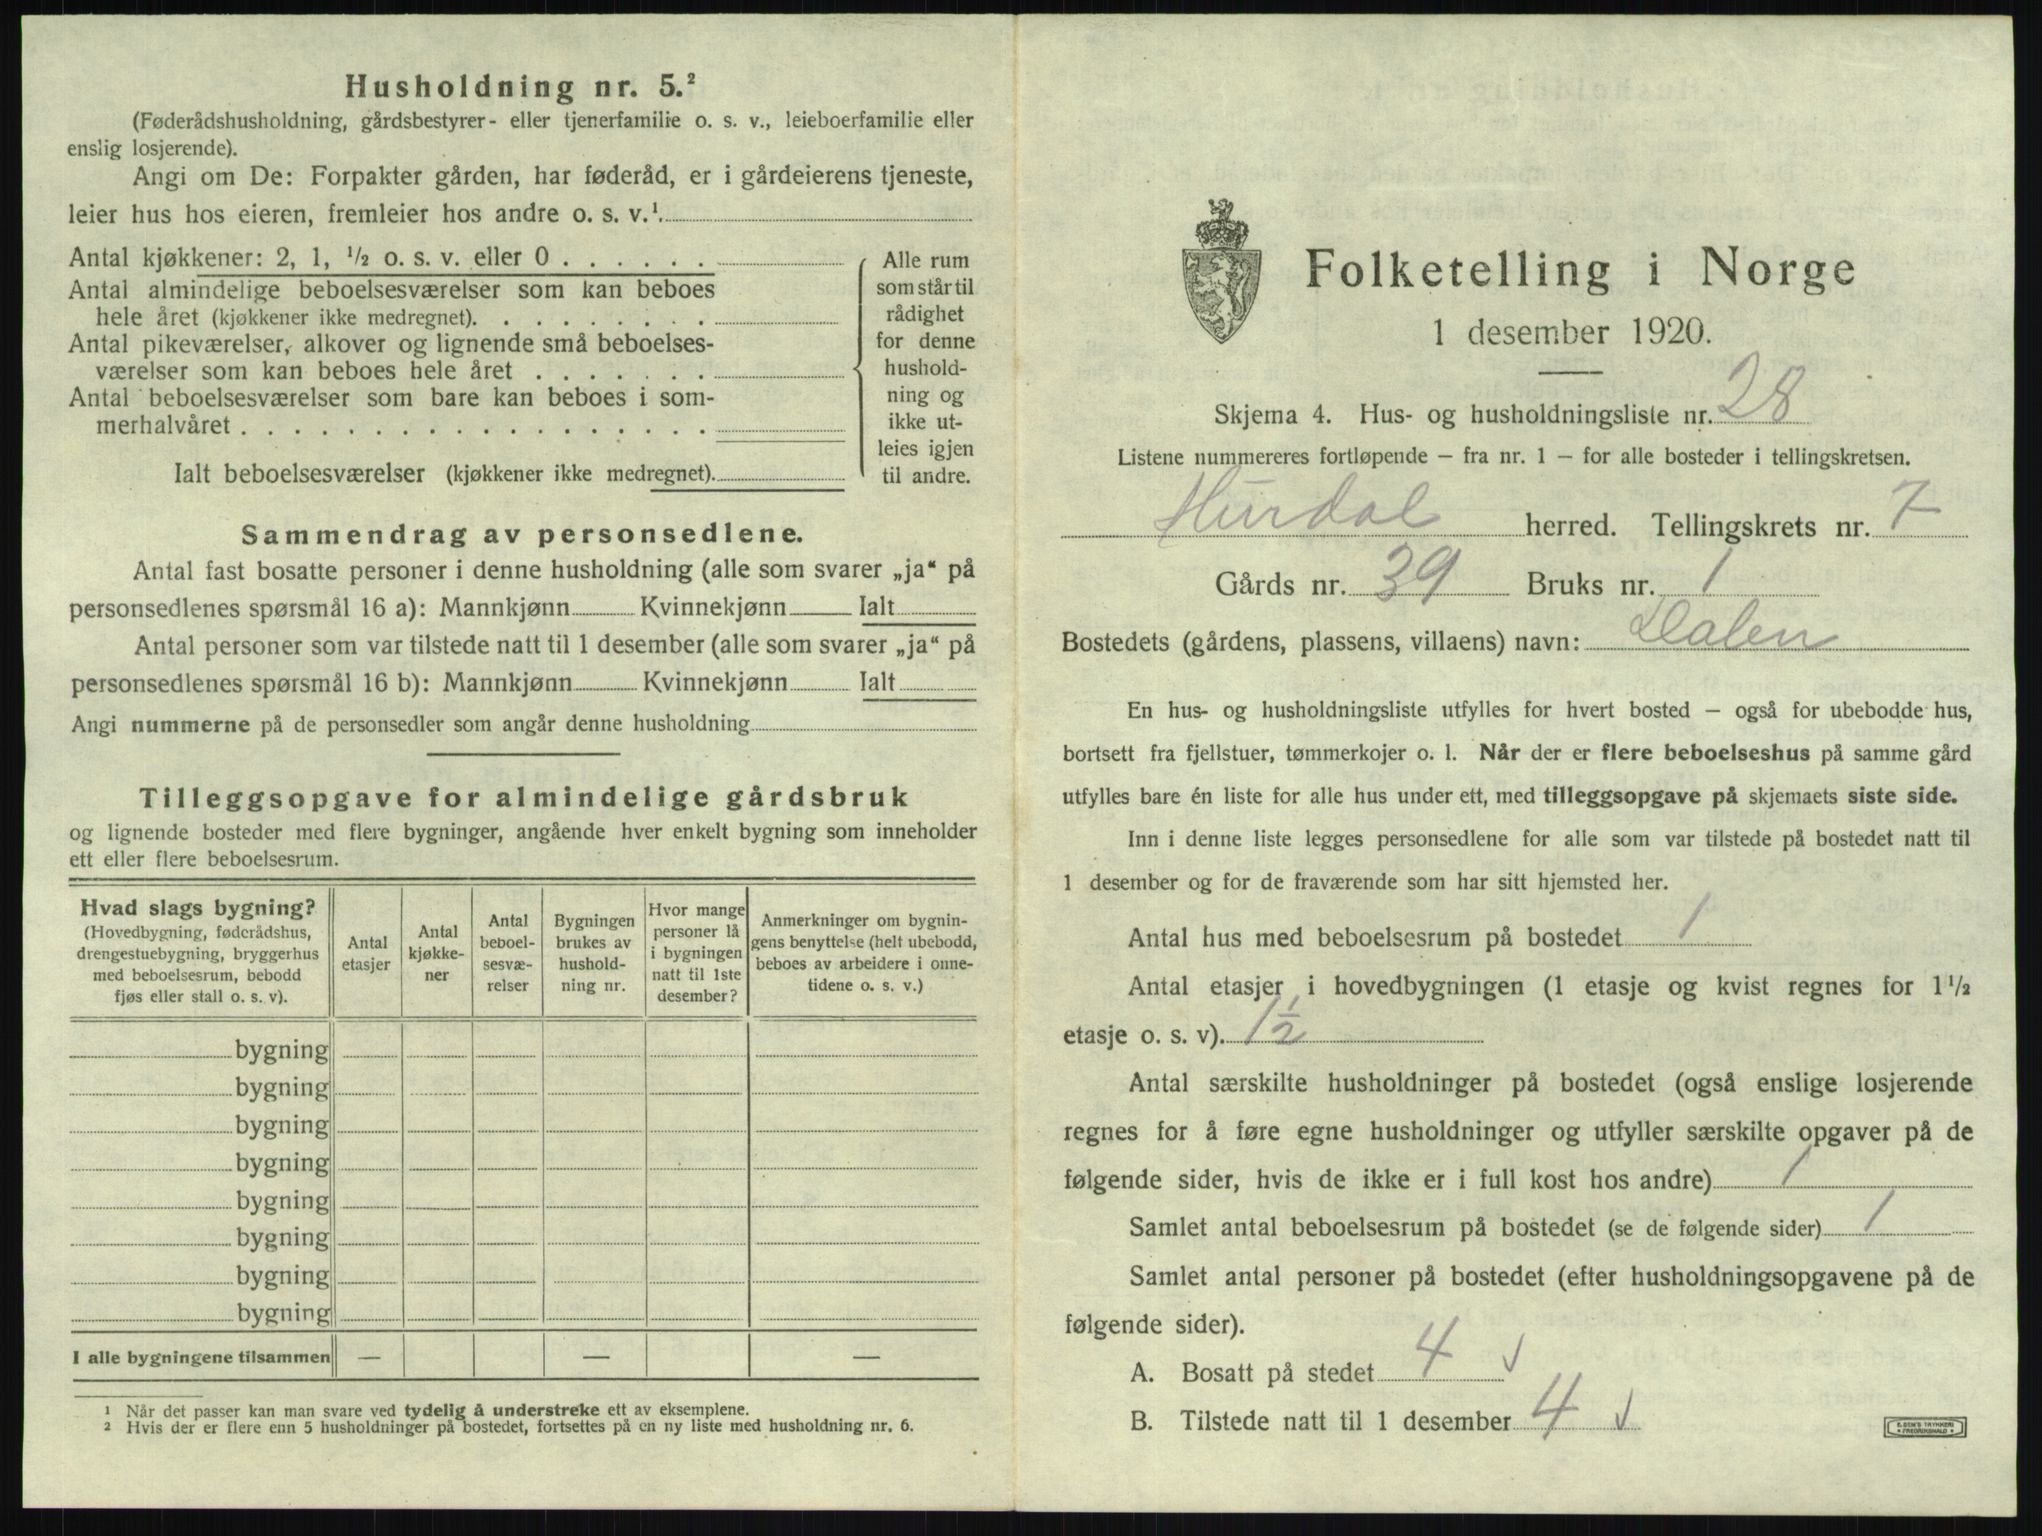 Husholdning nr. 5.²
(Føderådshusholdning, gårdsbestyrer- eller tjenerfamilie o. s. v., leieboerfamilie eller
enslig losjerende).
Angi om De: Forpakter gården, har føderåd, er i gårdeierens tjeneste,
leier hus hos eieren, fremleier hos andre o. s. v.¹.
Antal kjøkkener: 2, 1, ½ o. s. v. eller 0 . . . . . .
Antal almindelige beboelsesværelser som kan beboes
hele året (kjøkkener ikke medregnet). . . . . . . . .
Antal pikeværelser, alkover og lignende små beboelses-
værelser som kan beboes hele året . . . . . . .
Antal beboelsesværelser som bare kan beboes i som-
merhalvåret . . . . . . . . . . . . . . . . . .
Ialt beboelsesværelser (kjøkkener ikke medregnet).
Alle rum
som står til
rådighet
for denne
hushold-
ning og
ikke ut-
leies igjen
til andre.
Sammendrag av personsedlene.
Antal fast bosatte personer i denne husholdning (alle som svarer „ja“ på
personsedlenes spørsmål 16 a): Mannkjønn Kvinnekjønn Ialt
Antal personer som var tilstede natt til 1 desember (alle som svarer „ja“ på
personsedlenes spørsmål 16 b): Mannkjønn Kvinnekjønn Ialt
Angi nummerne på de personsedler som angår denne husholdning
Tilleggsopgave for almindelige gårdsbruk
og lignende bosteder med flere bygninger, angående hver enkelt bygning som inneholder
ett eller flere beboelsesrum.
Hvad slags bygning?
(Hovedbygning, føderådshus,
drengestuebygning, bryggerhus
med beboelsesrum, bebodd
fjøs eller stall o. s. v).
Antal
etasjer
Antal
kjøkke-
ner
Antal
beboel-
sesvæ-
relser
Bygningen
brukes av
hushold-
ning nr.
Hvor mange
personer lå
i bygningen
natt til 1ste
desember?
Anmerkninger om bygnin-
gens benyttelse (helt ubebodd,
beboes av arbeidere i onne-
tidene o. s. v.)
bygning
bygning
bygning
bygning
bygning
bygning
bygning
bygning
I alle bygningene tilsammen — — —
¹ Når det passer kan man svare ved tydelig å understreke ett av eksemplene.
² Hvis der er flere enn 5 husholdninger på bostedet, fortsettes på en ny liste med husholdning nr. 6.
Folketelling i Norge
1 desember 1920.
Skjema 4. Hus- og husholdningsliste nr. 28
Listene nummereres fortløpende – fra nr. 1 – for alle bosteder i tellingskretsen.
Hurdal herred. Tellingskrets nr. 7
Gårds nr. 39 Bruks nr. 1
Bostedets (gårdens, plassens, villaens) navn: Dalen
En hus- og husholdningsliste utfylles for hvert bosted – også for ubebodde hus,
bortsett fra fjellstuer, tømmerkojer o. l. Når der er flere beboelseshus på samme gård
utfylles bare én liste for alle hus under ett, med tilleggsopgave på skjemaets siste side.
Inn i denne liste legges personsedlene for alle som var tilstede på bostedet natt til
1 desember og for de fraværende som har sitt hjemsted her.
Antal hus med beboelsesrum på bostedet 1
Antal etasjer i hovedbygningen (1 etasje og kvist regnes for 1½
etasje o. s. v). 1½
Antal særskilte husholdninger på bostedet (også enslige losjerende
regnes for å føre egne husholdninger og utfyller særskilte opgaver på de
følgende sider, hvis de ikke er i full kost hos andre) 1
Samlet antal beboelsesrum på bostedet (se de følgende sider) 1
Samlet antal personer på bostedet (efter husholdningsopgavene på de
følgende sider).
A. Bosatt på stedet 4 √
B. Tilstede natt til 1 desember 4 √
E. SEM'S TRYKKERI
FREDRIKSHALD